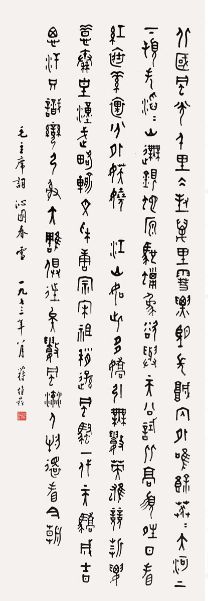 北國風光千里冰封萬里雪飄望長城內外唯餘莽莽大河上
下頓失滔滔山舞銀蛇原馳蠟象欲與天公試比高須晴日看
紅裝素裹分外妖嬈江山如此多嬌引無數英雄競折腰
惜秦皇漢武略輸文采唐宗宋祖稍遜風騷一代天驕成吉
思汗只識彎弓射大雕俱往矣數風流人物還看今朝
毛主席詞 沁園春雪 一九七三年八月 蔣維崧